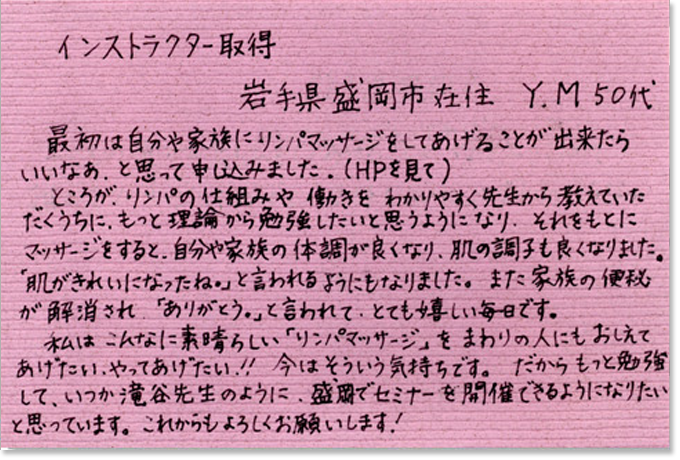 インストラクター取得
岩手県盛岡市在住 Y.M 50代
最初は自分や家族にリンパマッサージをしてあげることが出来たら
いいなあ、と思って申し込みました。(HPを見て)
ところが、リンパの仕組みや働きをわかりやすく先生から教えていた
だくうちに、もっと理論から勉強したいと思うようになり、それをもとに
マッサージをすると、自分や家族の体調が良くなり、肌の調子も良くなりました。
「肌がきれいになったね。」と言われるようにもなりました。また家族の便秘
が解消され、「ありがとう。」と言われて、とても嬉しい毎日です。
私はこんなに素晴らしい「リンパマッサージ」をまわりの人にもおしえて
あげたい、やってあげたい!!今はそういう気持ちです。だからもっと勉強
して、いつか滝谷先生のように、盛岡でセミナーを開催できるようになりたい
と思っています。これからもよろしくお願いします!